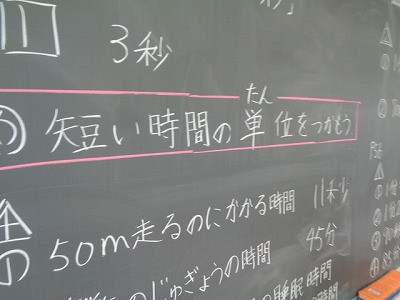 3秒
たん
め 短い時間の単位をつかもう
50m走るのにかかる時間 11秒
のじゅぎょうの時間 45分
の睡眠時間
P56